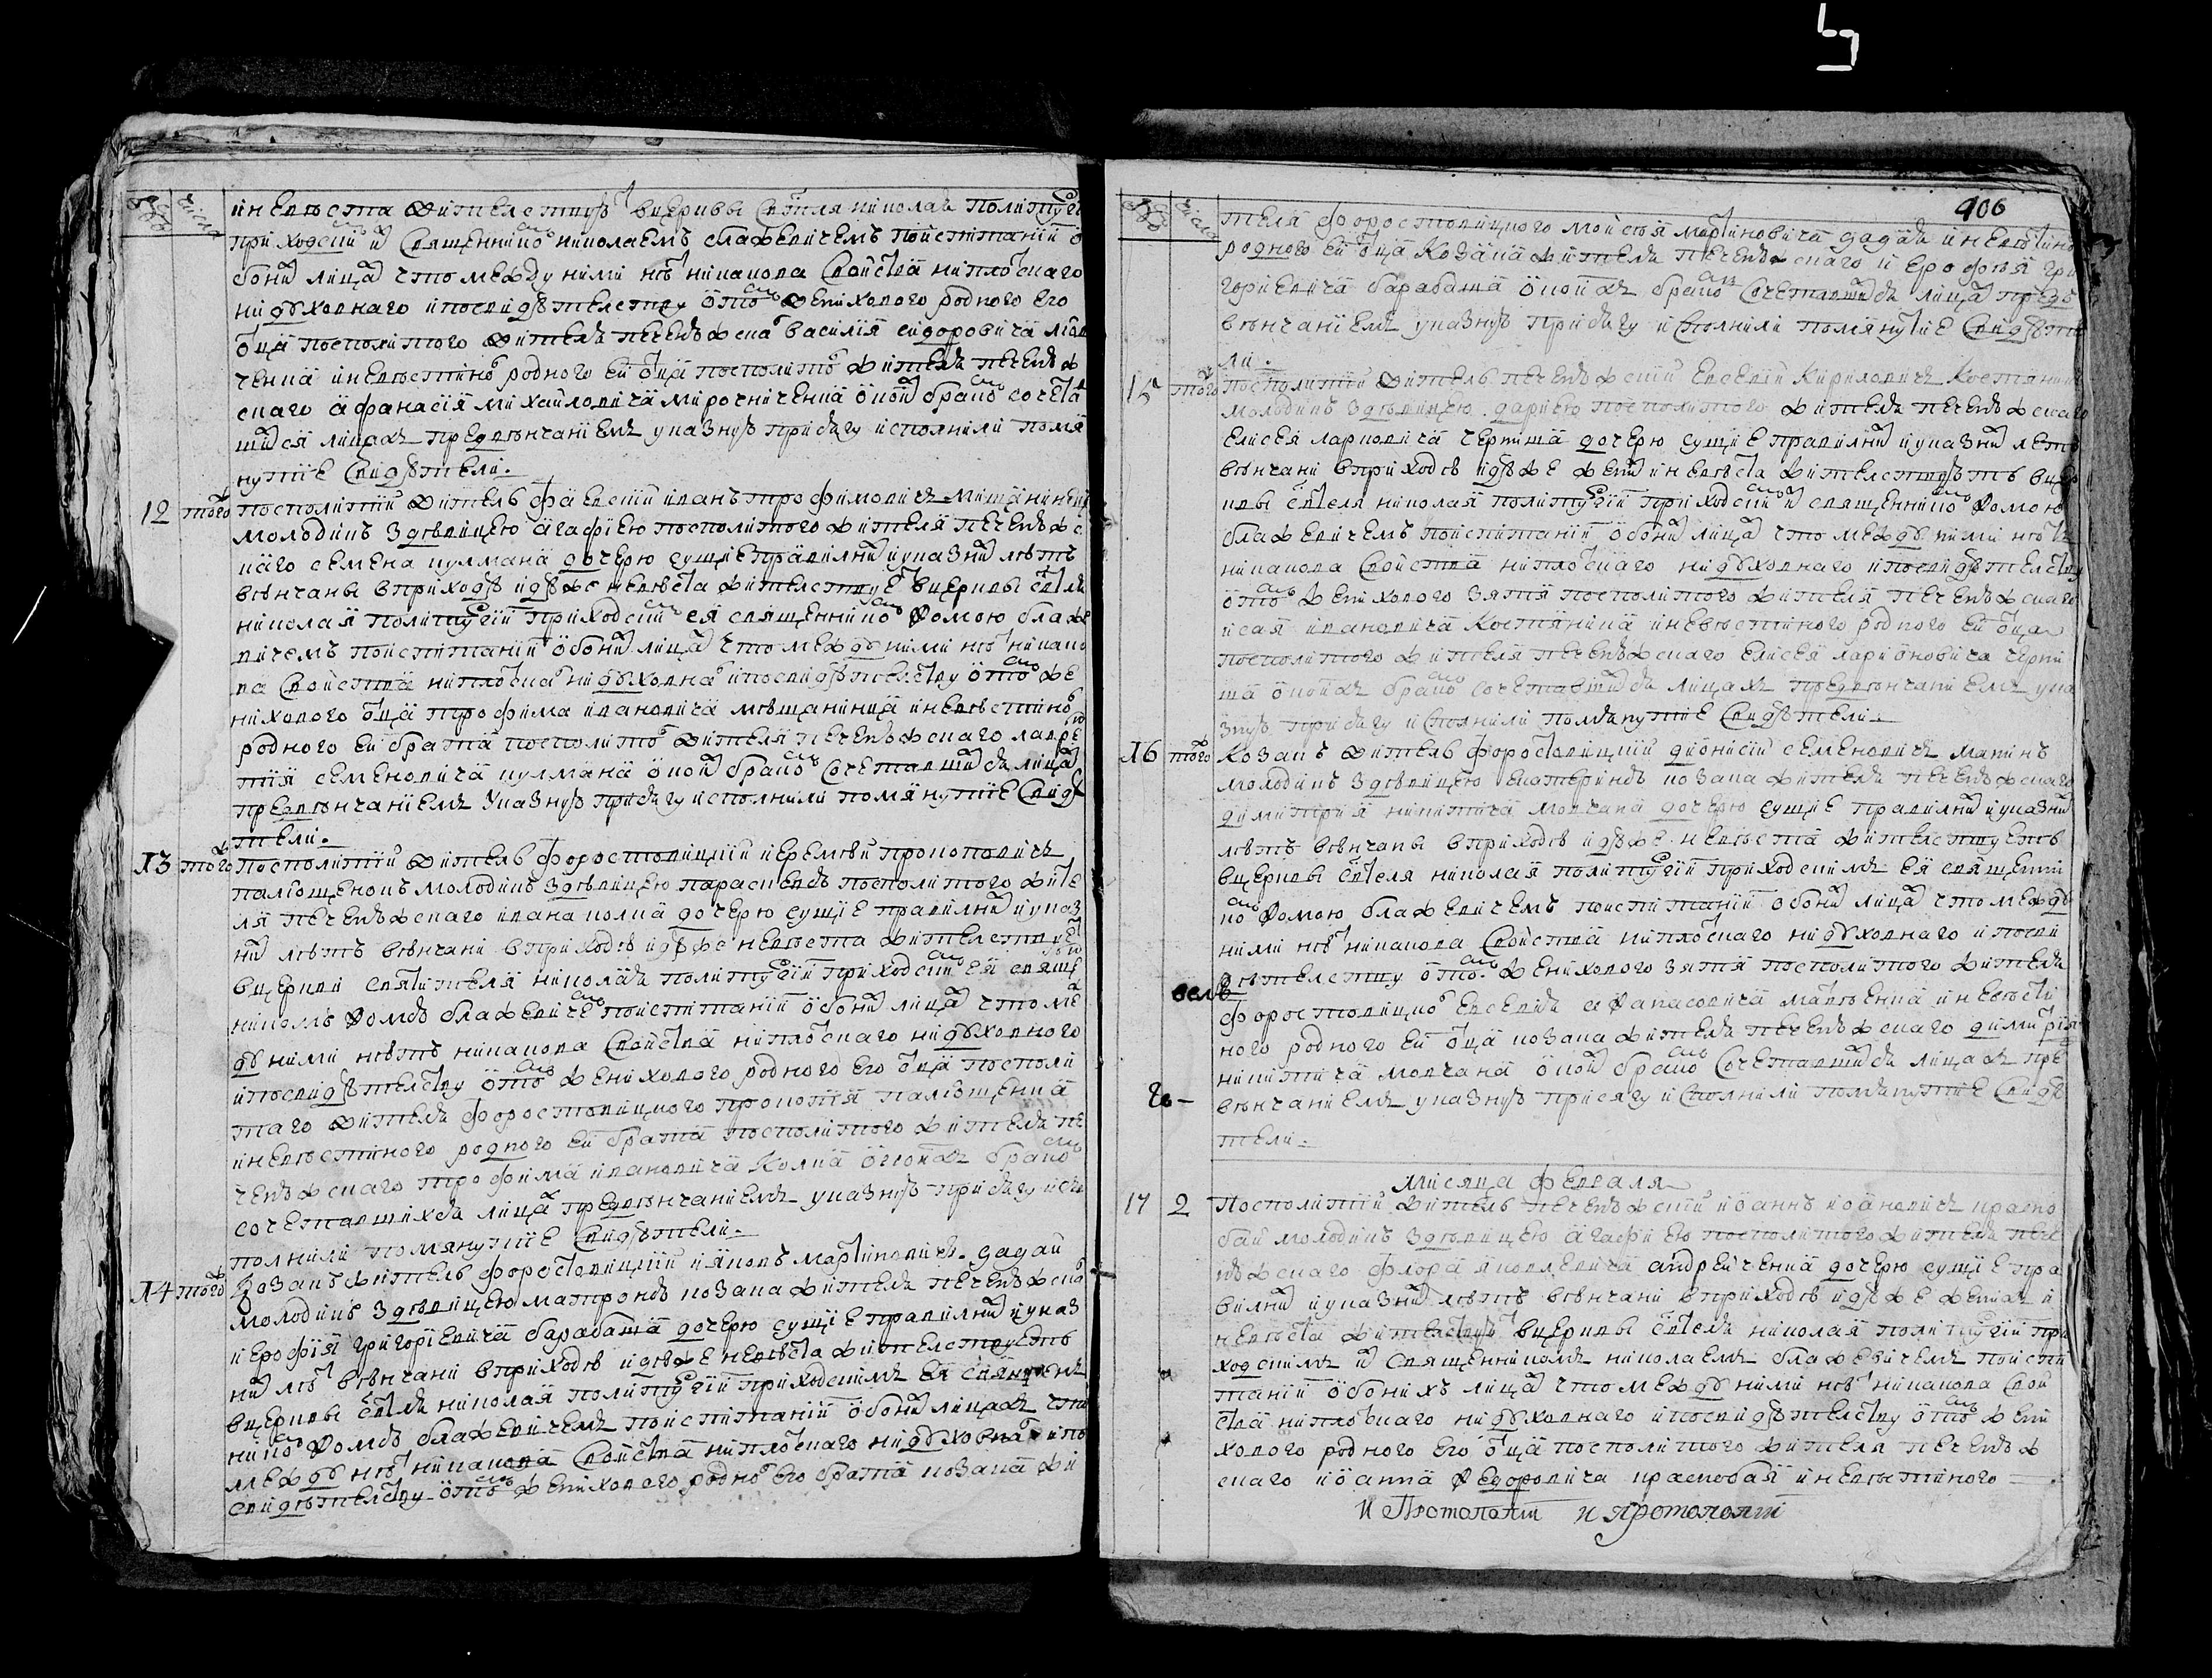 906
иневѣста жителствуютъ вцеркви святителя николая по литургіи
приходскимъ ихъ священникомъ николаемъ блажевичемъ поиспитаніи о
боихъ лицахъ что между ними нѣтъ никакова свойства ниплотскаго
нидуховнаго ипосвидѣтелству отомъ женихового родного его
отца посполитого жителя печенѣжска василія сидоровича
ченка иневѣстиного родного ей отца посполитого жителя печенѣж
скаго афанасія михайловича мирочниченка окоихъ бракомъ сочета
шихся лицахъ предвѣнчаніемъ указную присягу исполнили помя
нутіе свидѣтели.
12 того посполитій житель иванъ трофимовичъ
молодикъ здѣвицею агафіею посполитого жителя печенѣжс
каго семена кулмана дочерю сущіе правилнихъ иуказнихъ лѣтъ
вѣнчаны вприходѣ идѣже невѣста жителствуе вцеркви стителя
николая политургіи приходскимъ ея священникомъ фомою блаже
вичемъ поиспитаніи обоихъ лицахъ что межъ ними нѣтъ никако
ва свойства ниплотска нидуховна ипосвидѣтелству отомъ же
нихового отца трофима ивановича мѣщанинца иневѣстиного
родного ей брата посполитого жителя печенѣжскаго лавре
тія семеновича кулмана окоихъ бракомъ сочетавшихся лицахъ
предвѣнчаніемъ указную присягу исполнили помянутіе свидѣ
тели.
13 того посполитій житель форостовицкій иеремѣй прокоповичъ
паліощенокъ молодикъ здѣвицею параскевѣ посполитого жите
ля печенѣжскаго ивана колца дочерю сущіе правилнихъ иуказ
нихъ лѣтъ вѣнчани вприходѣ идѣже невѣста жителствуе
вцеркви святителя николая политургіи приходскимъ ея свяще
никомъ фомѣ блажевиче поиспитаніи обоихъ лицахъ что меж
ду ними нѣтъ никакова свойства ниплотскаго нидуховного
ипосвидѣтелству отомъ женихового родного его отца посполи
таго жителя форостовицкого прокопія паліощенка
иневѣстиного родного ей брата посполитого жителя пе
ченѣжскаго трофима ивановича колца окоихъ бракомъ
сочетавшихся лицахъ предвѣнчаніемъ указную присягу ис
полнили помянутіе свидѣтели.
14 того козакъ житель форостовицкій ияковъ мартиновичъ дадай
молодикъ здѣвицею матронѣ козака жителя печенѣжска
иерофія григоріевича барабаша дочерю сущіе правилнихъ иуказ
нихъ лѣтъ вѣнчани вприходѣ идѣже невѣста жителствуетъ
вцеркви стителя николая политургіи приходскимъ ея священ
никомъ фомѣ блажевичемъ поиспитаніи обоихъ лицахъ что
между нѣтъ никакова свойства ниплотскаго нидуховна ипо
свидѣтелству отомъ женихового родного его брата козака жи
теля форостовицкого моисея мартиновича дадая иневѣстино
родного ей отца козака жителя печенѣжскаго иерофѣя гри
горіевича барабаша окоихъ бракомъ сочетавшихся лицахъ предъ
вѣнчаніемъ указную присягу исполнили помянутіе свидѣте
ли.
15 того посполитій житель печенѣжскій евсевій кириловичъ
молодикъ здѣвицею дарією посполитого жителя печенѣжскаго
елисея лариовича черниша дочерю сущіе правилнихъ иуказнихъ лѣтъ
вѣнчани вприходѣ идѣже женихъ иневѣста жителствуютъ вцер
кви стителя николая политургіи приходскимъ ихъ священникомъ фомою
блажевичемъ поиспитаніи обоихъ лицахъ что межъду ними нѣтъ
никакова свойства ниплотскаго нидуховнаго ипосвидѣтелству
отомъ женихового зятя посполитого жителя печенѣжскаго
исая ивановича костянина иневѣстиного родного ей отца
посполитого жителя печенѣжскаго елисея ларионовича черни
ша окоихъ бракомъ сочетавшихся лицахъ предвѣнчаніемъ ука
зную присягу исполнили помянутіе свидѣтели.
16 того козакъ житель форостовицкій дионисій семеновичъ
молодикъ здѣвицею екатериною козака жителя печенѣжскаго
димитрія никитича мовчана дочерю сущіе правилнихъ иуказнихъ
лѣтъ вѣнчаны вприходѣ идѣже невѣста жителствуетъ
вцеркви стителя николая политургіи приходскимъ ея священни
комъ фомою блажевичемъ поиспитаніи обоихъ лицахъ что межъду
ними нѣтъ никакова свойства ниплотскаго нидуховнаго ипосви
дѣтелству отомъ жениховога зятя посполитого жителя
форостовицкого евсевія афанасовича иневѣсти
ного родного ей отца козака жителя печенѣжскаго димитрія
никитича мовчана окоихъ бракомъ сочетавшихся лицахъ пред
вѣнчаніемъ указную присягу исполнили помянутіе свидѣ
тели.
мисяца февраля
17 2 Посполитій житель печенѣжскій иоаннъ иоановичъ краско
бай молодикъ здѣвицею агафією посполитого жителя пече
нѣжскаго флора яковлевича андрейченка дочерю сущіе пра
вилнихъ иуказнихъ лѣтъ вѣнчани вприходѣ идѣже женихъ и
невѣста жителствуютъ вцеркви стителя николая политургіи при
ходскимъ ихъ священникомъ николаемъ блажевичемъ поиспи
таніи обоихъ лицахъ что межъду ними нѣтъ никакова свой
ства ниплотскаго нидуховнаго ипосвидѣтелству отомъ жени
хового родного его отца посполитого жителя печенѣж
скаго иоанна федоровича краскобая иневѣстиного
И Протопопъ И протопопъ